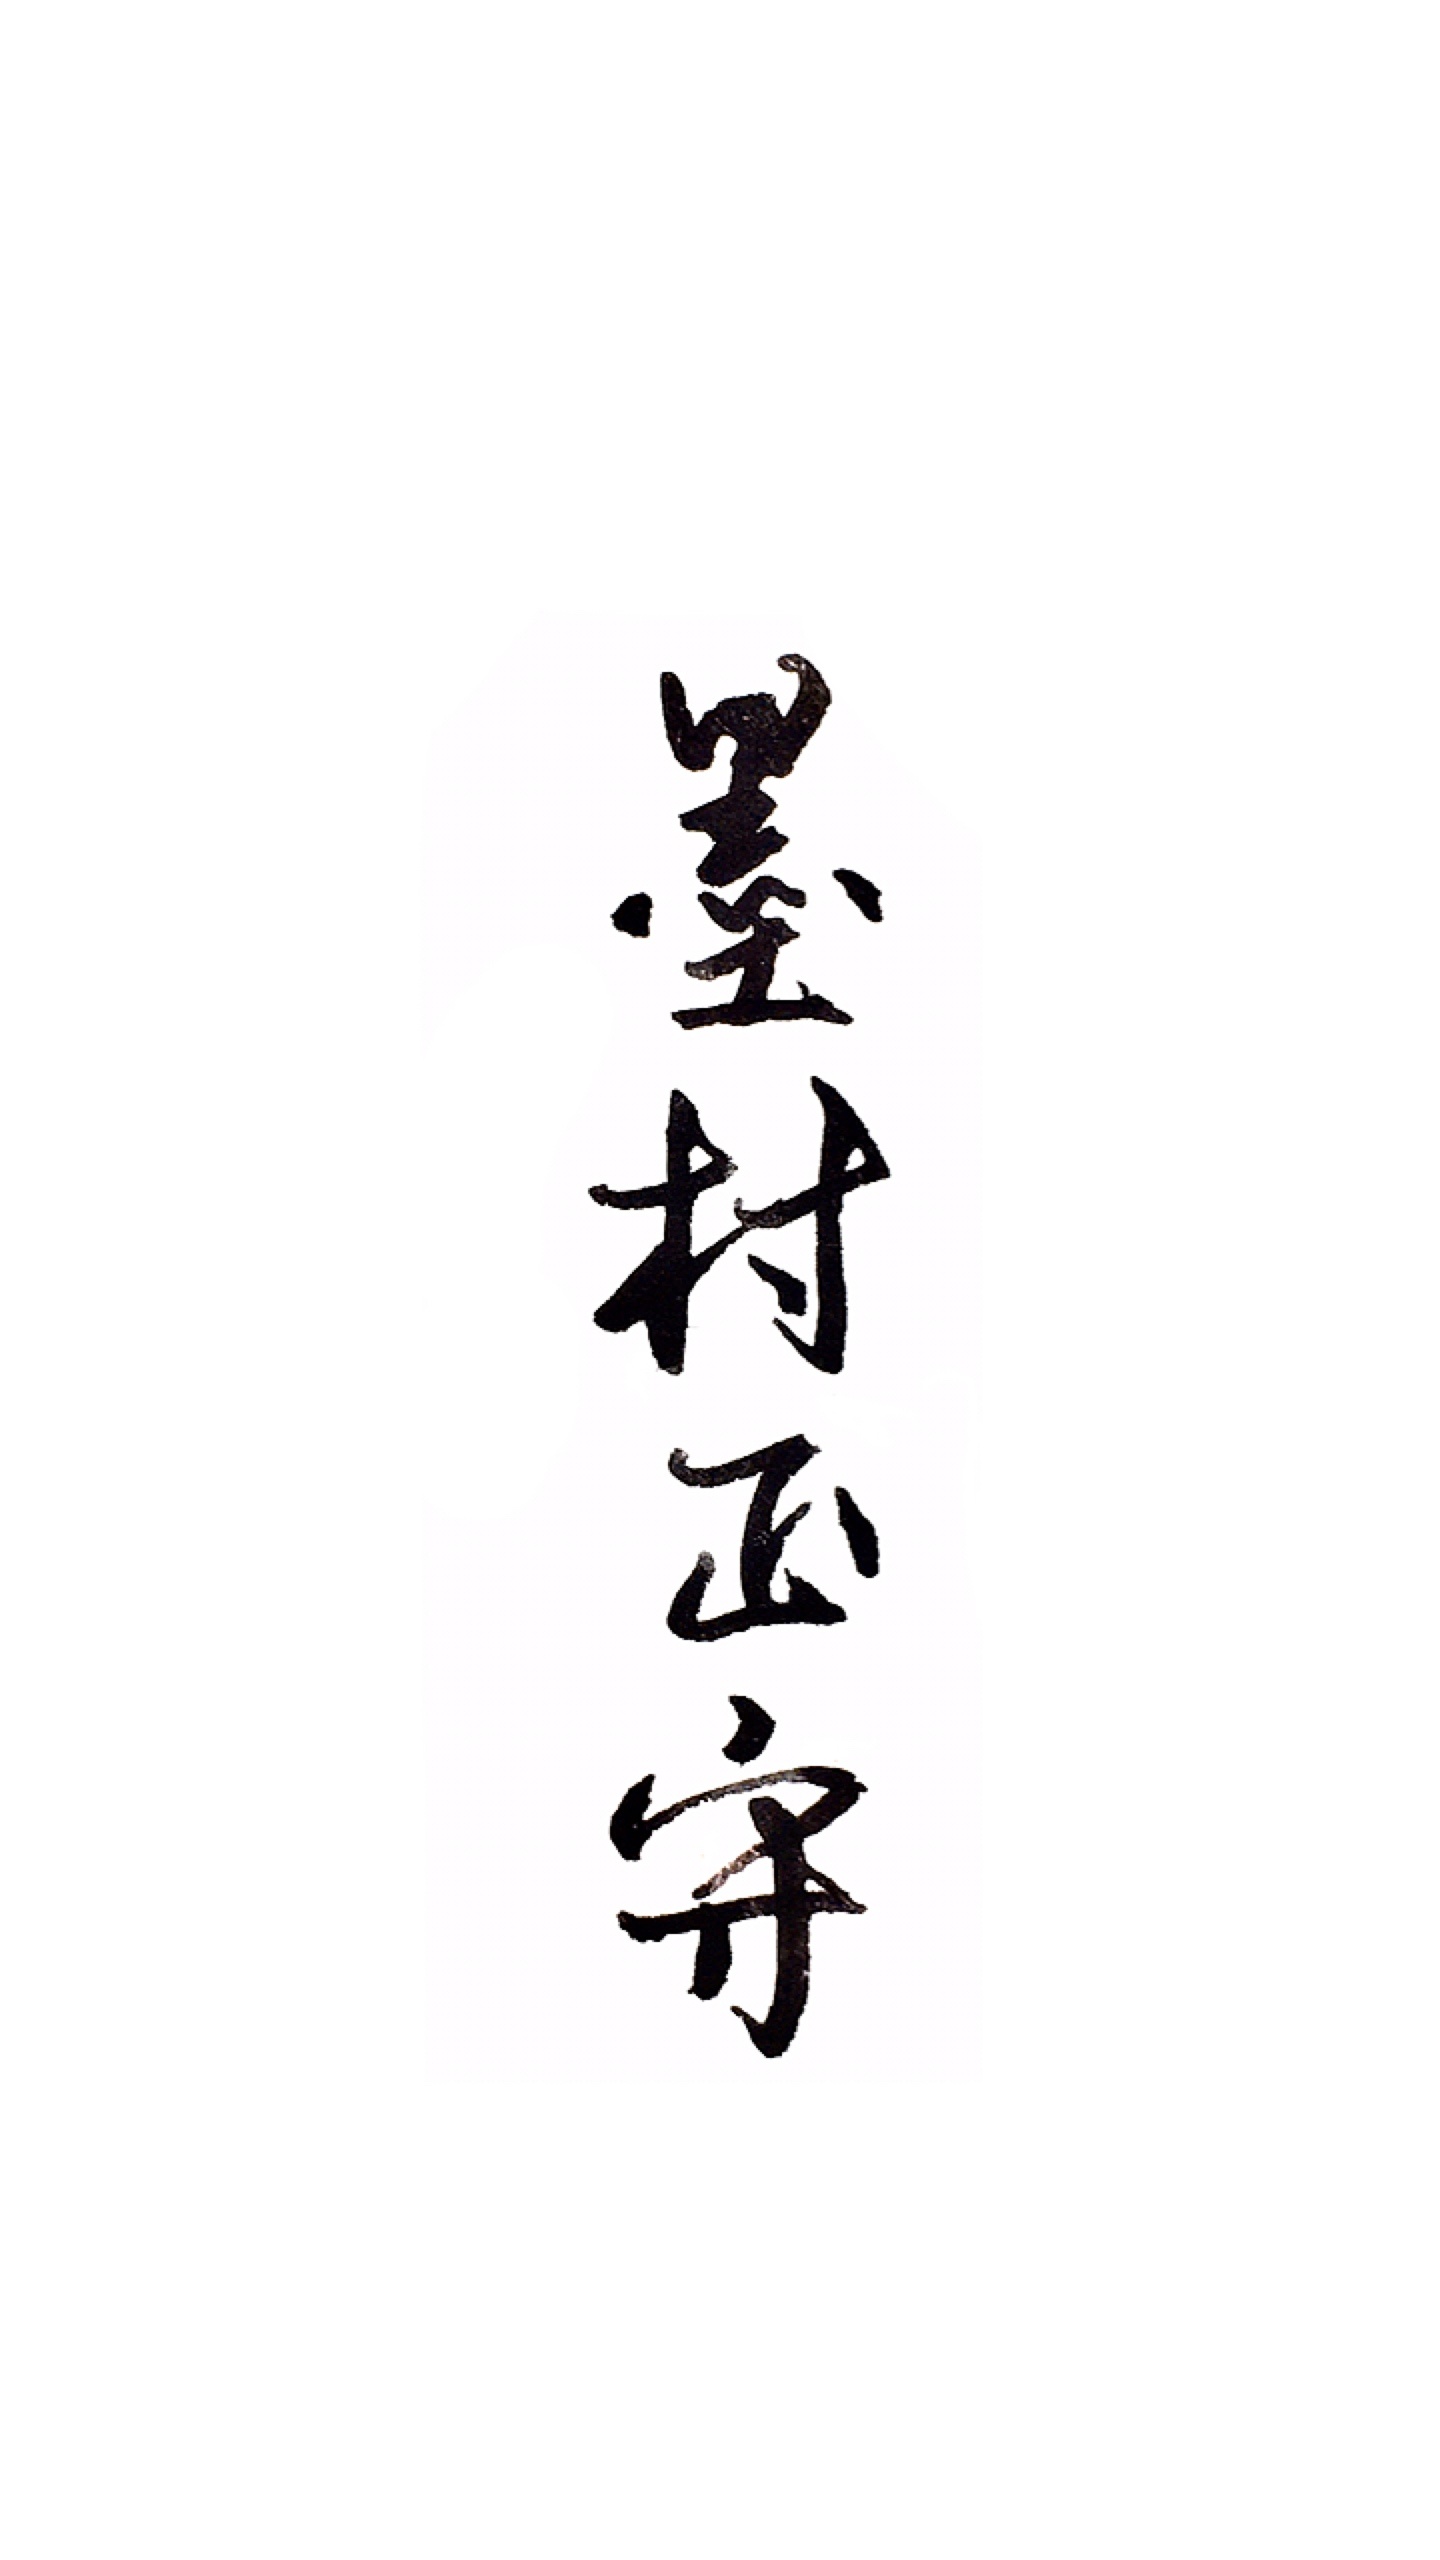 墨村正守